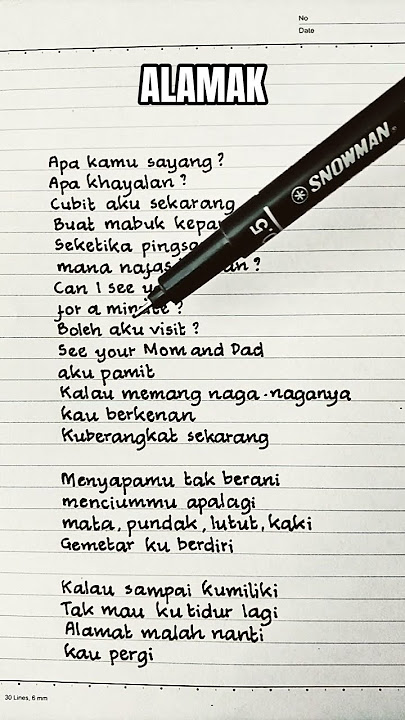 No
Date
ALAMAK
SNOWMAN
Apa kamu sayang ?
Apa khayalan ?
Cubit aku sekarang
Buat mabuk
Seketika
mana
Can I see
for a minute ?
Boleh aku visit ?
See your Mom and Dad
aku pamit
Kalau memang naga-naganya
kau berkenan
Kuberangkat sekarang
Menyapamu tak berani
menciummu apalagi
mata, pundak, lutut, kaki
Gemetar ku berdiri
Kalau sampai kumiliki
Tak mau ku tidur lagi
Alamat malah nanti
kau pergi
30 Lines, 6 mm